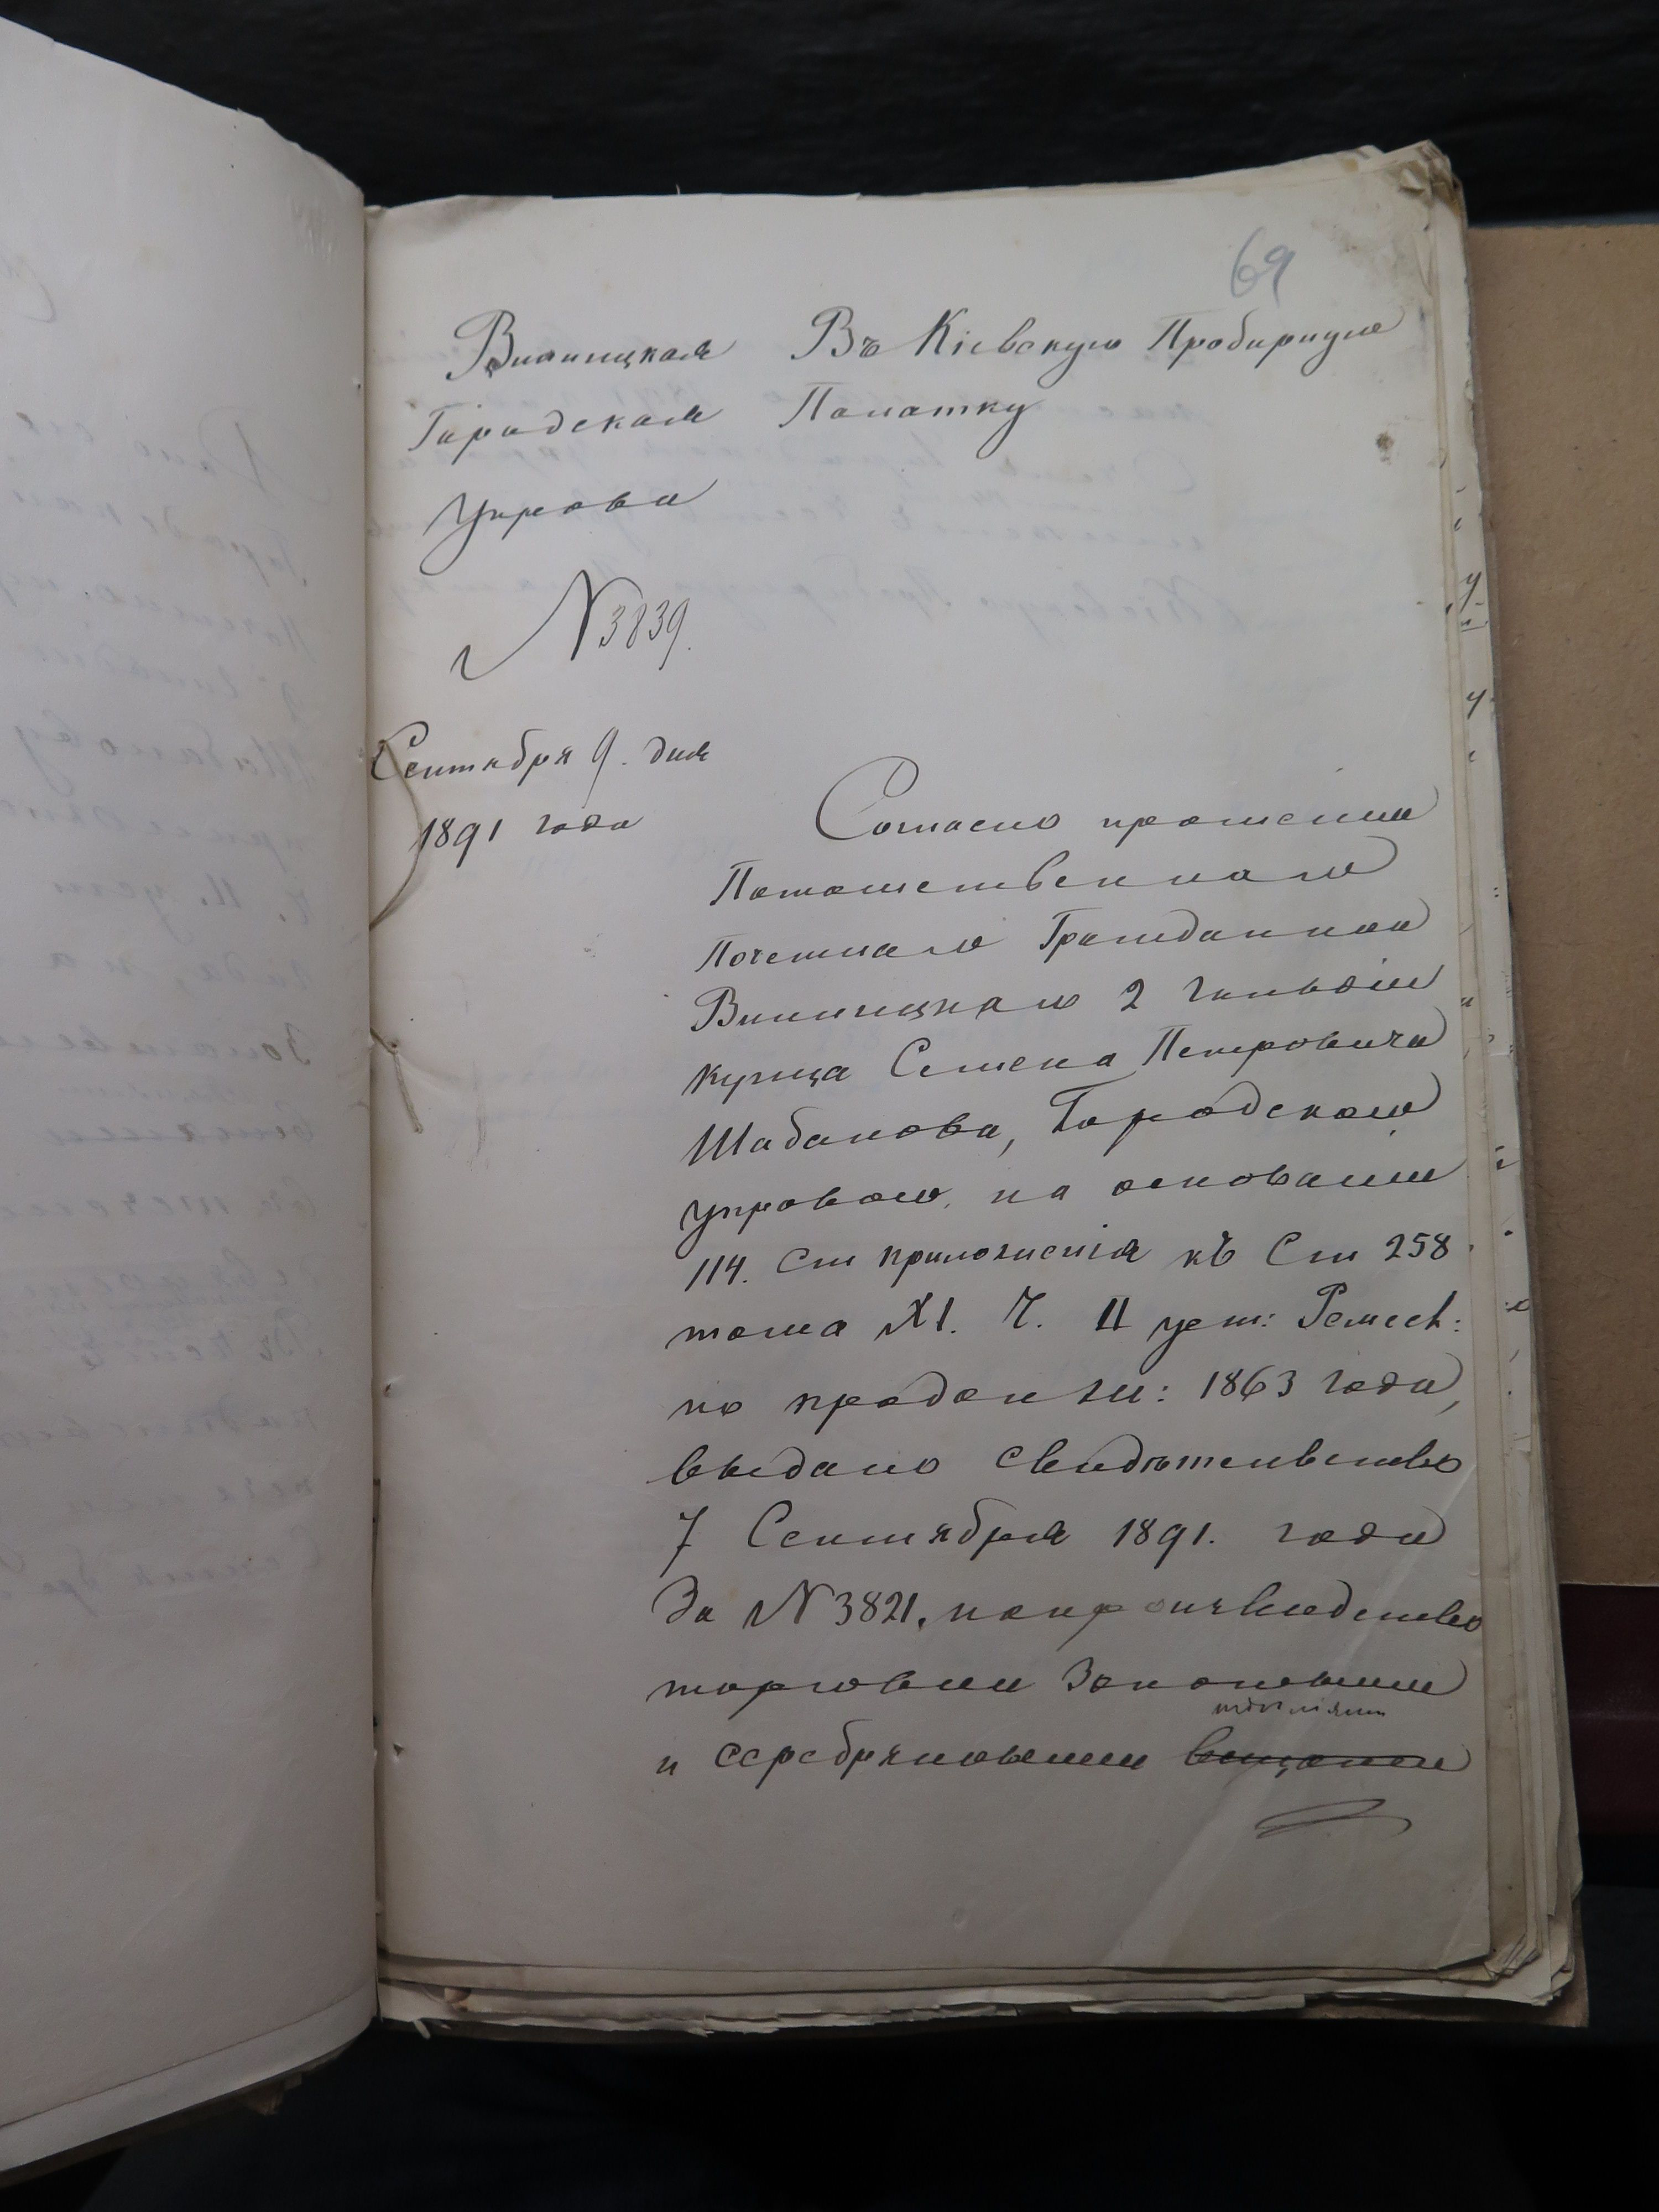 69
Винницкая
Городская
Управа
N 3839.
Сентября 9. дня
1891 года
Въ Кіевскую Пробирную
Палатку
Согласно прошенія
Потомственнаго
Почетнаго Гражданина
Винницкаго 2 гильдіи
купца Семена Петровича
Шабанова, Городскою
управою, на основаніи
114. Ст приложенія къ Ст 258
тома XI. Ч. II уст: Ремесл:
по продолж: 1863 года,
выдано свидѣтельство
7 Сентября 1891. года
За N 3821. на производство
торговли Золотыми
издѣліями
и серебряными вещами